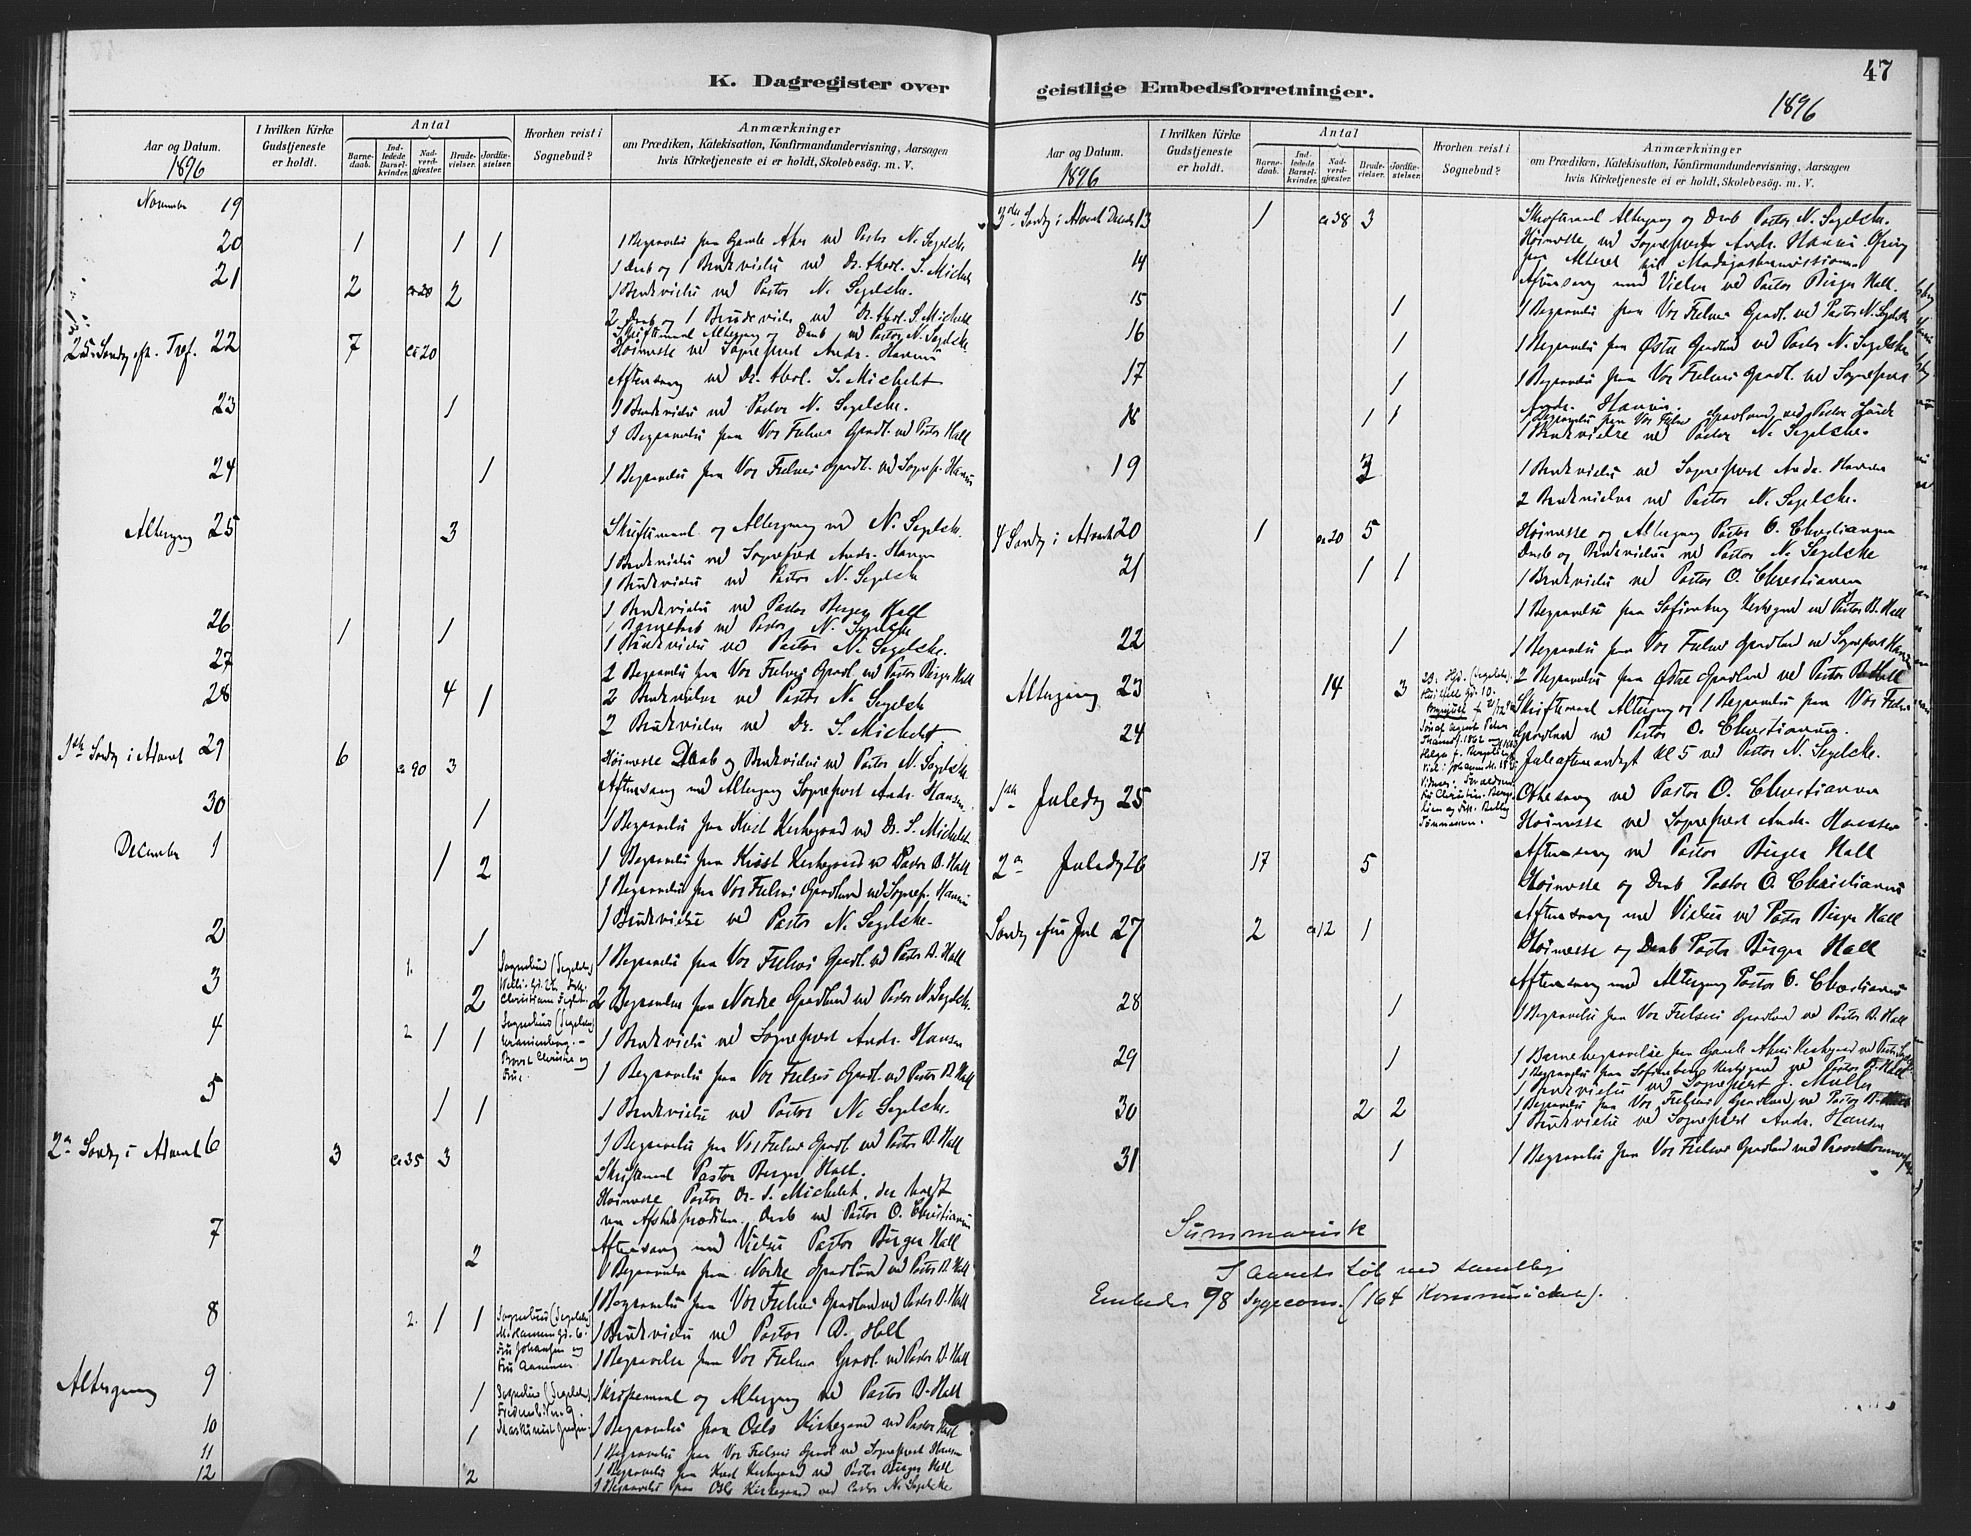 K. Dagregister over
Aar og Datum.
1896
I hvilken Kirke Gudstjeneste er holdt.
Antal
Barnedaab.
Indledede Barselkvinder.
Nadverdgjæster.
Brudevielser.
Jordfæstelser.
Hvorhen reist i Sognebud?
Anmærkninger
om Prædiken, Katekisation, Konfirmandundervisning, Aarsagen
hvis Kirketjeneste ei er holdt, Skolebesøg. m. V.
November 19
1 Begravelse fra Gamle Aker ved Pastor N. Segelcke
20 1 1 1
1 Daab og 1 Brudevielse ved Dr. theol. S. Michelet
21 2 ca 20 2
1 Brudevielse ved Pastor N. Segelcke.
2 Daab og 1 Brudevielse ved Dr. theol. S. Michelet
Skriftemaal Altergang og Daab ved Pastor N. Segelcke
25. Søndag eft. Tref. 22 7 ca 20
Høimesse ved Sogneprest Andr. Hansen
Aftensang ved Dr. theol. S. Michelet
23 1
1 Brudevielse ved Pastor N. Segelcke.
1 Begravelse fra Vor Frelsers Gravl. ved Pastor Hall
24 1
1 Begravelse fra Vor Frelsers Gravl. ved Sognepr. Hansen
Altergang 25 3
Skriftemaal og Altergang ved N. Segelcke.
1 Brudevielse ved Sogneprest Andr. Hansen
1 Brudevielse ved Pastor N. Segelcke
1 Brudevielse ved Pastor Birger Hall
26 1 1
1 Barnedaab ved Pastor N. Segelcke
1 Brudevielse ved Pastor N. Segelcke.
27
2 Begravelse fra Vor Frelsers Gravl. ved Pastor Birger Hall
28 4 1
2 Brudevielser ved Pastor N. Segelcke
2 Brudevielser ved Dr. S. Michelet
1ste Søndag i Advent 29 6 ca 90 3
Høimesse Daab og Brudevielse ved Pastor N. Segelcke
Aftensang med Altergang Sogneprest Andr. Hansen.
30 1
1 Begravelse fra Krist Kirkegaard ved Dr. S. Michelet
December 1 1 2
1 Begravelse fra Krist Kirkegaard v Pastor B. Hall
1 Begravelse fra Vor Frelsers Gravlund ved Sognepr. Hansen
1 Brudevielse ved Pastor N. Segelcke.
2 1
1 Begravelse fra Vor Frelsers Gravl. ved Pastor B. Hall
3 1. 2
Sognebud (Segelcke)
2 Begravelser fra Nordre Gravlund ved Pastor N. Segelcke.
4 2 1 1
Sognebud (Segelcke)
1 Brudevielse ved Sogneprest Andr. Hansen
1 Begravelse fra Vor Frelsers Gravl. ved Pastor B. Hall
5 1 1
1 Brudevielse ved Pastor N. Segelcke.
1 Begravelse fra Vor Frelsers Gravl. ved Pastor B. Hall
2den Søndag i Advent 6 3 ca 35 3
Skriftemaal Pastor Birger Hall.
Høimesse Pastor Dr. S. Michelet, der holdt
sin Afskedsprædiken. Daab ved Pastor O. Christiansen
Aftensang med Vielse Pastor Birger Hall
7 2
1 Begravelse fra Nordre Gravlund ved Pastor B. Hall
1 Begravelse fra Vor Frelsers Gravlund ved Pastor B. Hall
8 2. 1 1
Sognebud (Segelcke)
1 Brudevielse ved Pastor B. Hall
1 Begravelse fra Vor Frelsers Gravl. ved Pastor B. Hall
Altergang 9 1
Sognebud (Segelcke)
Skriftemaal og Altergang ved Pastor B. Hall
10 1
1 Begravelse fra Oslo Kirkegaard ved Pastor Hall
11
1 Begravelse fra Vor Frelsers Gravl ved Sogneprest Hansen
12 2
1 Begravelse fra Krist Kirkegaard ved Pastor Birger Hall
1 Begravelse fra Oslo Kirkegaard ved Pastor N. Segelcke
47
geistlige Embedsforretninger.
1896
Aar og Datum.
1896
I hvilken Kirke Gudstjeneste er holdt.
Antal
Barnedaab.
Indledede Barselkvinder.
Nadverdgjæster.
Brudevielser.
Jordfæstelser.
Hvorhen reist i Sognebud?
Anmærkninger
om Prædiken, Katekisation, Konfirmandundervisning, Aarsagen
hvis Kirketjeneste ei er holdt, Skolebesøg. m. V.
3die Søndag i Advent Decbr 13 1 ca 38 3
Skriftemaal Altergang og Daab Pastor N. Segelcke.
Høimesse ved Sogneprest Andr. Hansen Ofring
fra Alteret til Madagaskarmissionen
14
Aftensang med Vielse ved Pastor Birger Hall.
15 1
1 Begravelse fra Vor Frelsers Gravl. ved Pastor N. Segelcke
16 1
1 Begravelse fra Østre Gravlund ved Pastor N. Segelcke
17 1
1 Begravelse fra Vor Frelsers Gravl. ved Sogneprest
Andr. Hansen.
18 1 1
1 Begravelse fra Vor Frelsers Gravlund ved Pastor
1 Brudevielse ved Pastor N. Segelcke.
19 3
1 Brudevielse ved Sogneprest Andr. Hansen
2 Brudevielser ved Pastor N. Segelcke.
4 Søndag i Advent 20 1 ca 20 5
Høimesse og Altergang Pastor O. Christiansen
Daab og Brudevielse ved Pastor N. Segelcke
21 1 1
1 Brudevielse ved Pastor O. Christiansen
1 Begravelse fra Sofienberg Kirkegaard ved Pastor B. Hall
22 1
1 Begravelse fra Vor Frelsers Gravlund ved Sogneprest Hansen
2 Begravelse fra Østre Gravlund ved Pastor B. Hall
Altergang 23 14 3
Skriftemaal Altergang og 1 Begravelse fra Vor Frelsers
Gravlund ved Pastor O. Christiansen.
24
Juleaftenandagt Kl 5 ved Pastor N. Segelcke.
1ste Juledag 25
Ottesang ved Pastor O. Christiansen
Høimesse ved Sogneprest Andr. Hansen
Aftensang ved Pastor Birger Hall
2den Juledag 26 17 5
Høimesse og Daab Pastor O. Christiansen
Aftensang med Vielser ved Pastor Birger Hall
Søndag efter Jul 27 2 ca 12 1
Høimesse og Daab Pastor Birger Hall
Aftensang med Altergang Pastor O. Christiansen
28 1
1 Begravelse fra Vor Frelsers Gravlund ved Pastor B. Hall
29 1
1 Barnebegravelse fra Gamle Akers Kirkegaard ved Pastor
1 Begravelse fra Sofienberg Kirkegaard ved Pastor B. Hall
1 Brudevielse ved Sogneprest J. Müller
30 2 2
1 Begravelse fra Vor Frelsers Gravlund ved Pastor B. Hall
1 Brudevielse ved Sogneprest Andr. Hansen
31 1
1 Begravelse fra Vor Frelsers Gravlund ved
Summarisk
I Aarets Løb ved samtlige
Embeder 98 Sygecom. (164 Kommunicanter).